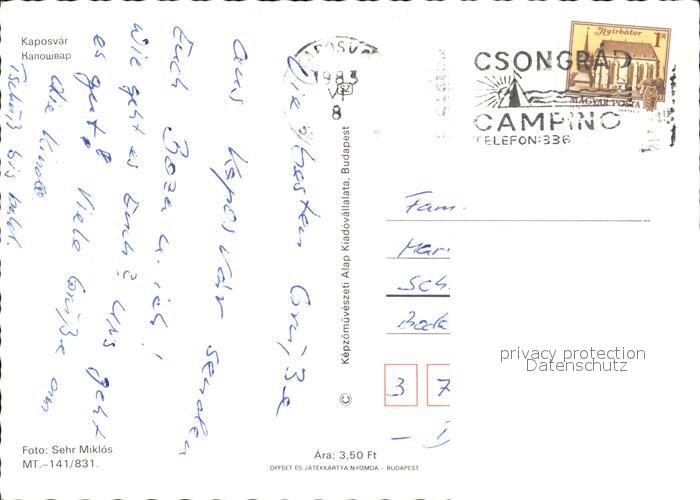 Kaposvár
Капошвар
Die besten Grüße
aus Kaposvár senden
Euch Boza u. ich!
Wie geht es Euch? Uns geht
es gut! Viele Grüße an
die Kinder
Tschüß bis bald.
Foto: Sehr Miklós
MT.–141/831.
Képzőművészeti Alap Kiadóvállalata, Budapest
©
Ára: 3,50 Ft
OFFSET ÉS JÁTÉKKÁRTYA NYOMDA – BUDAPEST
KAPOSVÁR
1983
VI
8
CSONGRÁD
CAMPING
TELEFON:336
Nyírbátor 1Ft
MAGYAR POSTA
Fam.
Mar
Sch
3 7
privacy protection
Datenschutz